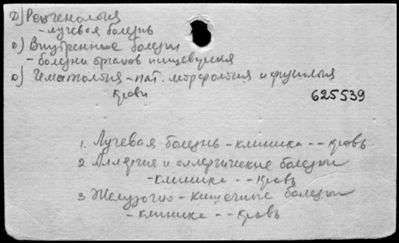 г) Рентгенология
- лучевая болезнь
о) Внутренние болезни
- болезни органов пищеварения
о) Гематология - пат. морфология и физиология
крови
625539
1. Лучевая болезнь - клиника - - кровь
2. Аллергия и аллергические болезни
- клиника - - кровь
3 Желудочно-кишечные болезни
- клиника - - кровь